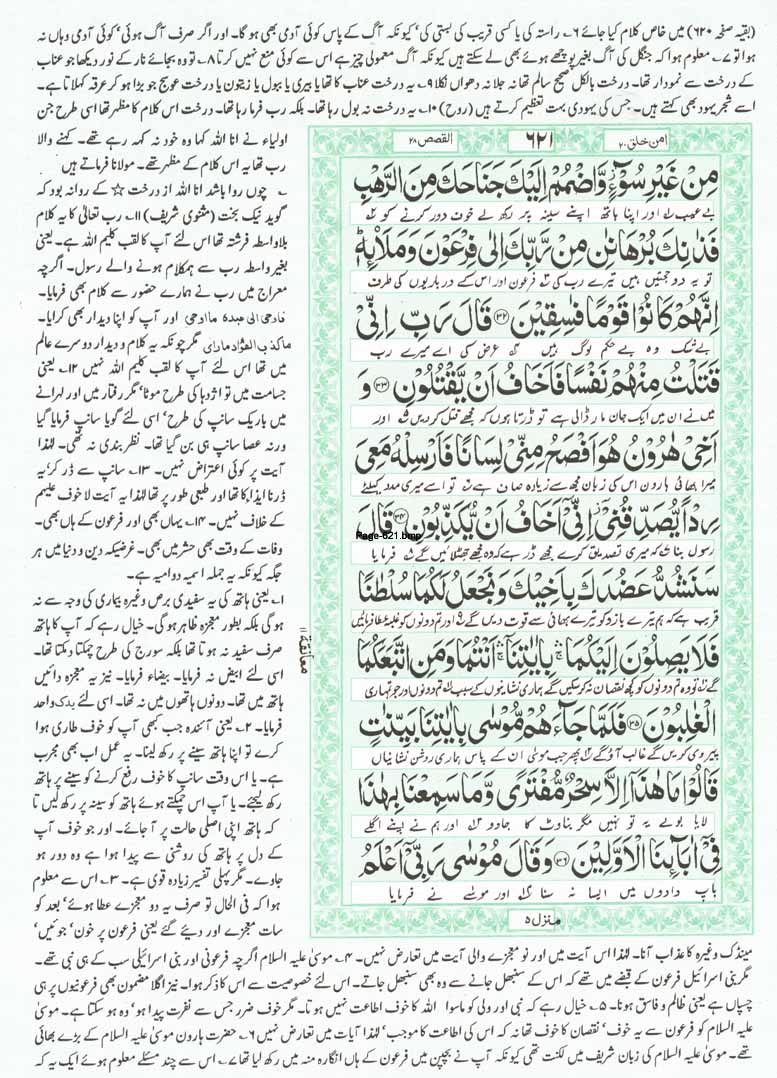 (بقیہ صفحہ ۶۲۰) میں خاص کلام کیا جائے ۶۔ راستہ کی یا کسی قریب کی بستی کی‘ کیونکہ آگ کے پاس کوئی آدمی بھی ہو گا۔ اور اگر صرف آگ ہوئی‘ کوئی آدمی وہاں نہ
ہوا تو ۷۔ معلوم ہوا کہ جنگل کی آگ بغیر پوچھے ہوئے بھی لے سکتے ہیں کیونکہ آگ معمولی چیز ہے اس سے کوئی منع نہیں کرتا ۸۔ تو وہ بجائے نار کے نور دیکھا جو عناب
کے درخت سے نمودار تھا۔ درخت بالکل صحیح سالم تھا نہ جلا نہ دھواں نکلا ۹۔ یہ درخت عناب کا تھا یا بیری یا ببول یا زیتون یا درخت عوسج جو بڑا ہو کر عرقد کہلاتا ہے۔
اسے شجر یہود بھی کہتے ہیں۔ جس کی یہودی بہت تعظیم کرتے ہیں (روح) ۱۰۔ یہ درخت نہ بول رہا تھا۔ بلکہ رب فرما رہا تھا۔ درخت اس کلام کا مظہر تھا اسی طرح جن
اولیاء نے انا اللہ کہا وہ خود نہ کہہ رہے تھے۔ کہنے والا
رب تھا یہ اس کلام کے مظہر تھے۔ مولانا فرماتے ہیں
چوں روا باشد انا اللہ از درخت ☆ کے روا نہ بود کہ
گوید نیک بخت (مثنوی شریف) ۱۱۔ رب تعالیٰ کا یہ کلام
بلاواسطہ فرشتہ تھا اس لئے آپ کا لقب کلیم اللہ ہے۔ یعنی
بغیر واسطہ رب سے ہمکلام ہونے والے رسول۔ اگرچہ
معراج میں رب نے ہمارے حضور سے کلام بھی فرمایا۔
فاوحی الی عبدہ ما اوحی اور آپ کو اپنا دیدار بھی کرایا۔
ما کذب الفؤاد ما رای مگر چونکہ یہ کلام و دیدار دوسرے عالم
میں تھا اس لئے آپ کا لقب کلیم اللہ نہیں ۱۲۔ یعنی
جسامت میں تو اژدہا کی طرح موٹا‘ مگر رفتار میں اور لہرانے
میں باریک سانپ کی طرح‘ اسی لئے گویا سانپ فرمایا گیا
ورنہ عصا سانپ ہی بن گیا تھا۔ نظر بندی نہ تھی۔ لہٰذا
آیت پر کوئی اعتراض نہیں۔ ۱۳۔ سانپ سے ڈر کر‘ یہ
ڈرنا ایذا کا تھا اور طبعی طور پر تھا لہٰذا یہ آیت لا خوف علیہم
کے خلاف نہیں۔ ۱۴۔ یہاں بھی اور فرعون کے ہاں بھی۔
وفات کے وقت بھی حشر میں بھی۔ غرضیکہ دین و دنیا میں ہر
جگہ کیونکہ یہ جملہ اسمیہ دوامیہ ہے۔
۱۔ یعنی ہاتھ کی یہ سفیدی برص وغیرہ بیماری کی وجہ سے نہ
ہو گی بلکہ بطور معجزہ ظاہر ہو گی۔ خیال رہے کہ آپ کا ہاتھ
صرف سفید نہ ہوتا تھا بلکہ سورج کی طرح چمکتا دمکتا تھا۔
اسی لئے ابیض نہ فرمایا۔ بیضاء فرمایا۔ نیز یہ معجزہ داہنے
ہاتھ میں تھا۔ دونوں ہاتھوں میں نہ تھا۔ اسی لئے یدک واحد
فرمایا۔ ۲۔ یعنی آئندہ جب کبھی آپ کو خوف طاری ہوا
کرے تو اپنا ہاتھ سینے پر رکھ لینا۔ یہ عمل اب بھی مجرب
ہے۔ یا اس وقت سانپ کا خوف رفع کرنے کو سینے پر ہاتھ
رکھ لیجئے۔ یا آپ اس چمکتے ہوئے ہاتھ کو سینہ پر رکھ لیں تا
کہ ہاتھ اپنی اصلی حالت پر آ جائے۔ اور جو خوف آپ
کے دل پر ہاتھ کی روشنی سے پیدا ہوا ہے وہ دور ہو
جاوے۔ مگر پہلی تفسیر زیادہ قوی ہے۔ ۳۔ اس سے معلوم
ہوا کہ فی الحال تو صرف یہ دو معجزے عطا ہوئے‘ بعد کو
سات معجزے اور دیئے گئے یعنی فرعون پر خون‘ جوئیں‘
امن خلق ۲۰
۶۲۱
القصص ۲۸
مِنْ غَيْرِ سُوْٓءٍ وَّاضْمُمْ اِلَيْكَ جَنَاحَكَ مِنَ الرَّهْبِ
بے عیب ۱ اور اپنا ہاتھ اپنے سینہ پر رکھ لے خوف دور کرنے کو ۲
فَذٰنِكَ بُرْهَانٰنِ مِنْ رَّبِّكَ اِلٰى فِرْعَوْنَ وَمَلَا۟ىِٕهٖ
تو یہ دو حجتیں ہیں تیرے رب کی ۳ فرعون اور اس کے درباریوں کی طرف
اِنَّهُمْ كَانُوْا قَوْمًا فٰسِقِيْنَ ۳۲ قَالَ رَبِّ اِنِّيْ
بے شک وہ بے حکم لوگ ہیں ۴ عرض کی اے میرے رب
قَتَلْتُ مِنْهُمْ نَفْسًا فَاَخَافُ اَنْ يَّقْتُلُوْنِ ۳۳ وَ
میں نے ان میں ایک جان مار ڈالی ہے تو ڈرتا ہوں کہ مجھے قتل کر دیں ۵ اور
اَخِيْ هٰرُوْنُ هُوَ اَفْصَحُ مِنِّيْ لِسَانًا فَاَرْسِلْهُ مَعِيَ
میرا بھائی ہارون اس کی زبان مجھ سے زیادہ صاف ہے ۶ تو اسے میری مدد کیلئے
رِدْاً يُّصَدِّقُنِيْٓ اِنِّيْٓ اَخَافُ اَنْ يُّكَذِّبُوْنِ ۳۴ قَالَ
Page-621.bmp
رسول بنا ۷ کہ میری تصدیق کرے مجھے ڈر ہے کہ وہ مجھے جھٹلائیں گے ۸ فرمایا
سَنَشُدُّ عَضُدَكَ بِاَخِيْكَ وَنَجْعَلُ لَكُمَا سُلْطٰنًا
قریب ہے کہ ہم تیرے بازو کو تیرے بھائی سے قوت دیں گے ۹ اور تم دونوں کو غلبہ عطا فرمائیں
فَلَا يَصِلُوْنَ اِلَيْكُمَا بِاٰيٰتِنَآ اَنْتُمَا وَمَنِ اتَّبَعَكُمَا
گے ۱۰ تو وہ تم دونوں کو کچھ نقصان نہ کر سکیں گے ہماری نشانیوں کے سبب تم دونوں اور جو تمہاری
معانقة ۱۱
الْغٰلِبُوْنَ ۳۵ فَلَمَّا جَآءَهُمْ مُّوْسٰى بِاٰيٰتِنَا بَيِّنٰتٍ
پیروی کریں گے غالب آؤ گے پھر جب موسٰی ان کے پاس ہماری روشن نشانیاں
قَالُوْا مَا هٰذَآ اِلَّا سِحْرٌ مُّفْتَرًى وَّمَا سَمِعْنَا بِهٰذَا
لایا بولے یہ تو نہیں مگر بناوٹ کا جادو اور ہم نے اپنے اگلے
فِيْٓ اٰبَآىِٕنَا الْاَوَّلِيْنَ ۳۶ وَقَالَ مُوْسٰى رَبِّيْٓ اَعْلَمُ
باپ دادوں میں ایسا نہ سنا اور موسٰی نے فرمایا
منزل ۵
مینڈک وغیرہ کا عذاب آنا۔ لہٰذا اس آیت میں اور نو معجزے والی آیت میں تعارض نہیں۔ ۴۔ موسیٰ علیہ السلام اگرچہ فرعونی اور بنی اسرائیلی سب کے ہی نبی تھے۔
مگر بنی اسرائیل فرعون کے قبضے میں تھے کہ اس کے سنبھل جانے سے وہ بھی سنبھل جاتے۔ اس لئے خصوصیت سے اس کا ذکر ہوا۔ نیز اگلا مضمون بھی فرعونیوں پر ہی
چسپاں ہے یعنی ظالم و فاسق ہونا۔ ۵۔ خیال رہے کہ نبی اور ولی کو ماسوا اللہ کا خوف اطاعت نہیں ہوتا۔ مگر خوف ضرر جس سے نفرت پیدا ہو‘ وہ ہو سکتا ہے۔ موسیٰ
علیہ السلام کو فرعون سے یہ خوف‘ نقصان کا خوف تھا نہ کہ اس کی اطاعت کا موجب‘ لہٰذا آیات میں تعارض نہیں ۶۔ حضرت ہارون موسیٰ علیہ السلام کے بڑے بھائی
تھے۔ موسیٰ علیہ السلام کی زبان شریف میں لکنت تھی کیونکہ آپ نے بچپن میں فرعون کے ہاں انگارہ منہ میں رکھ لیا تھا ۷۔ اس سے چند مسئلے معلوم ہوئے ایک یہ کہ